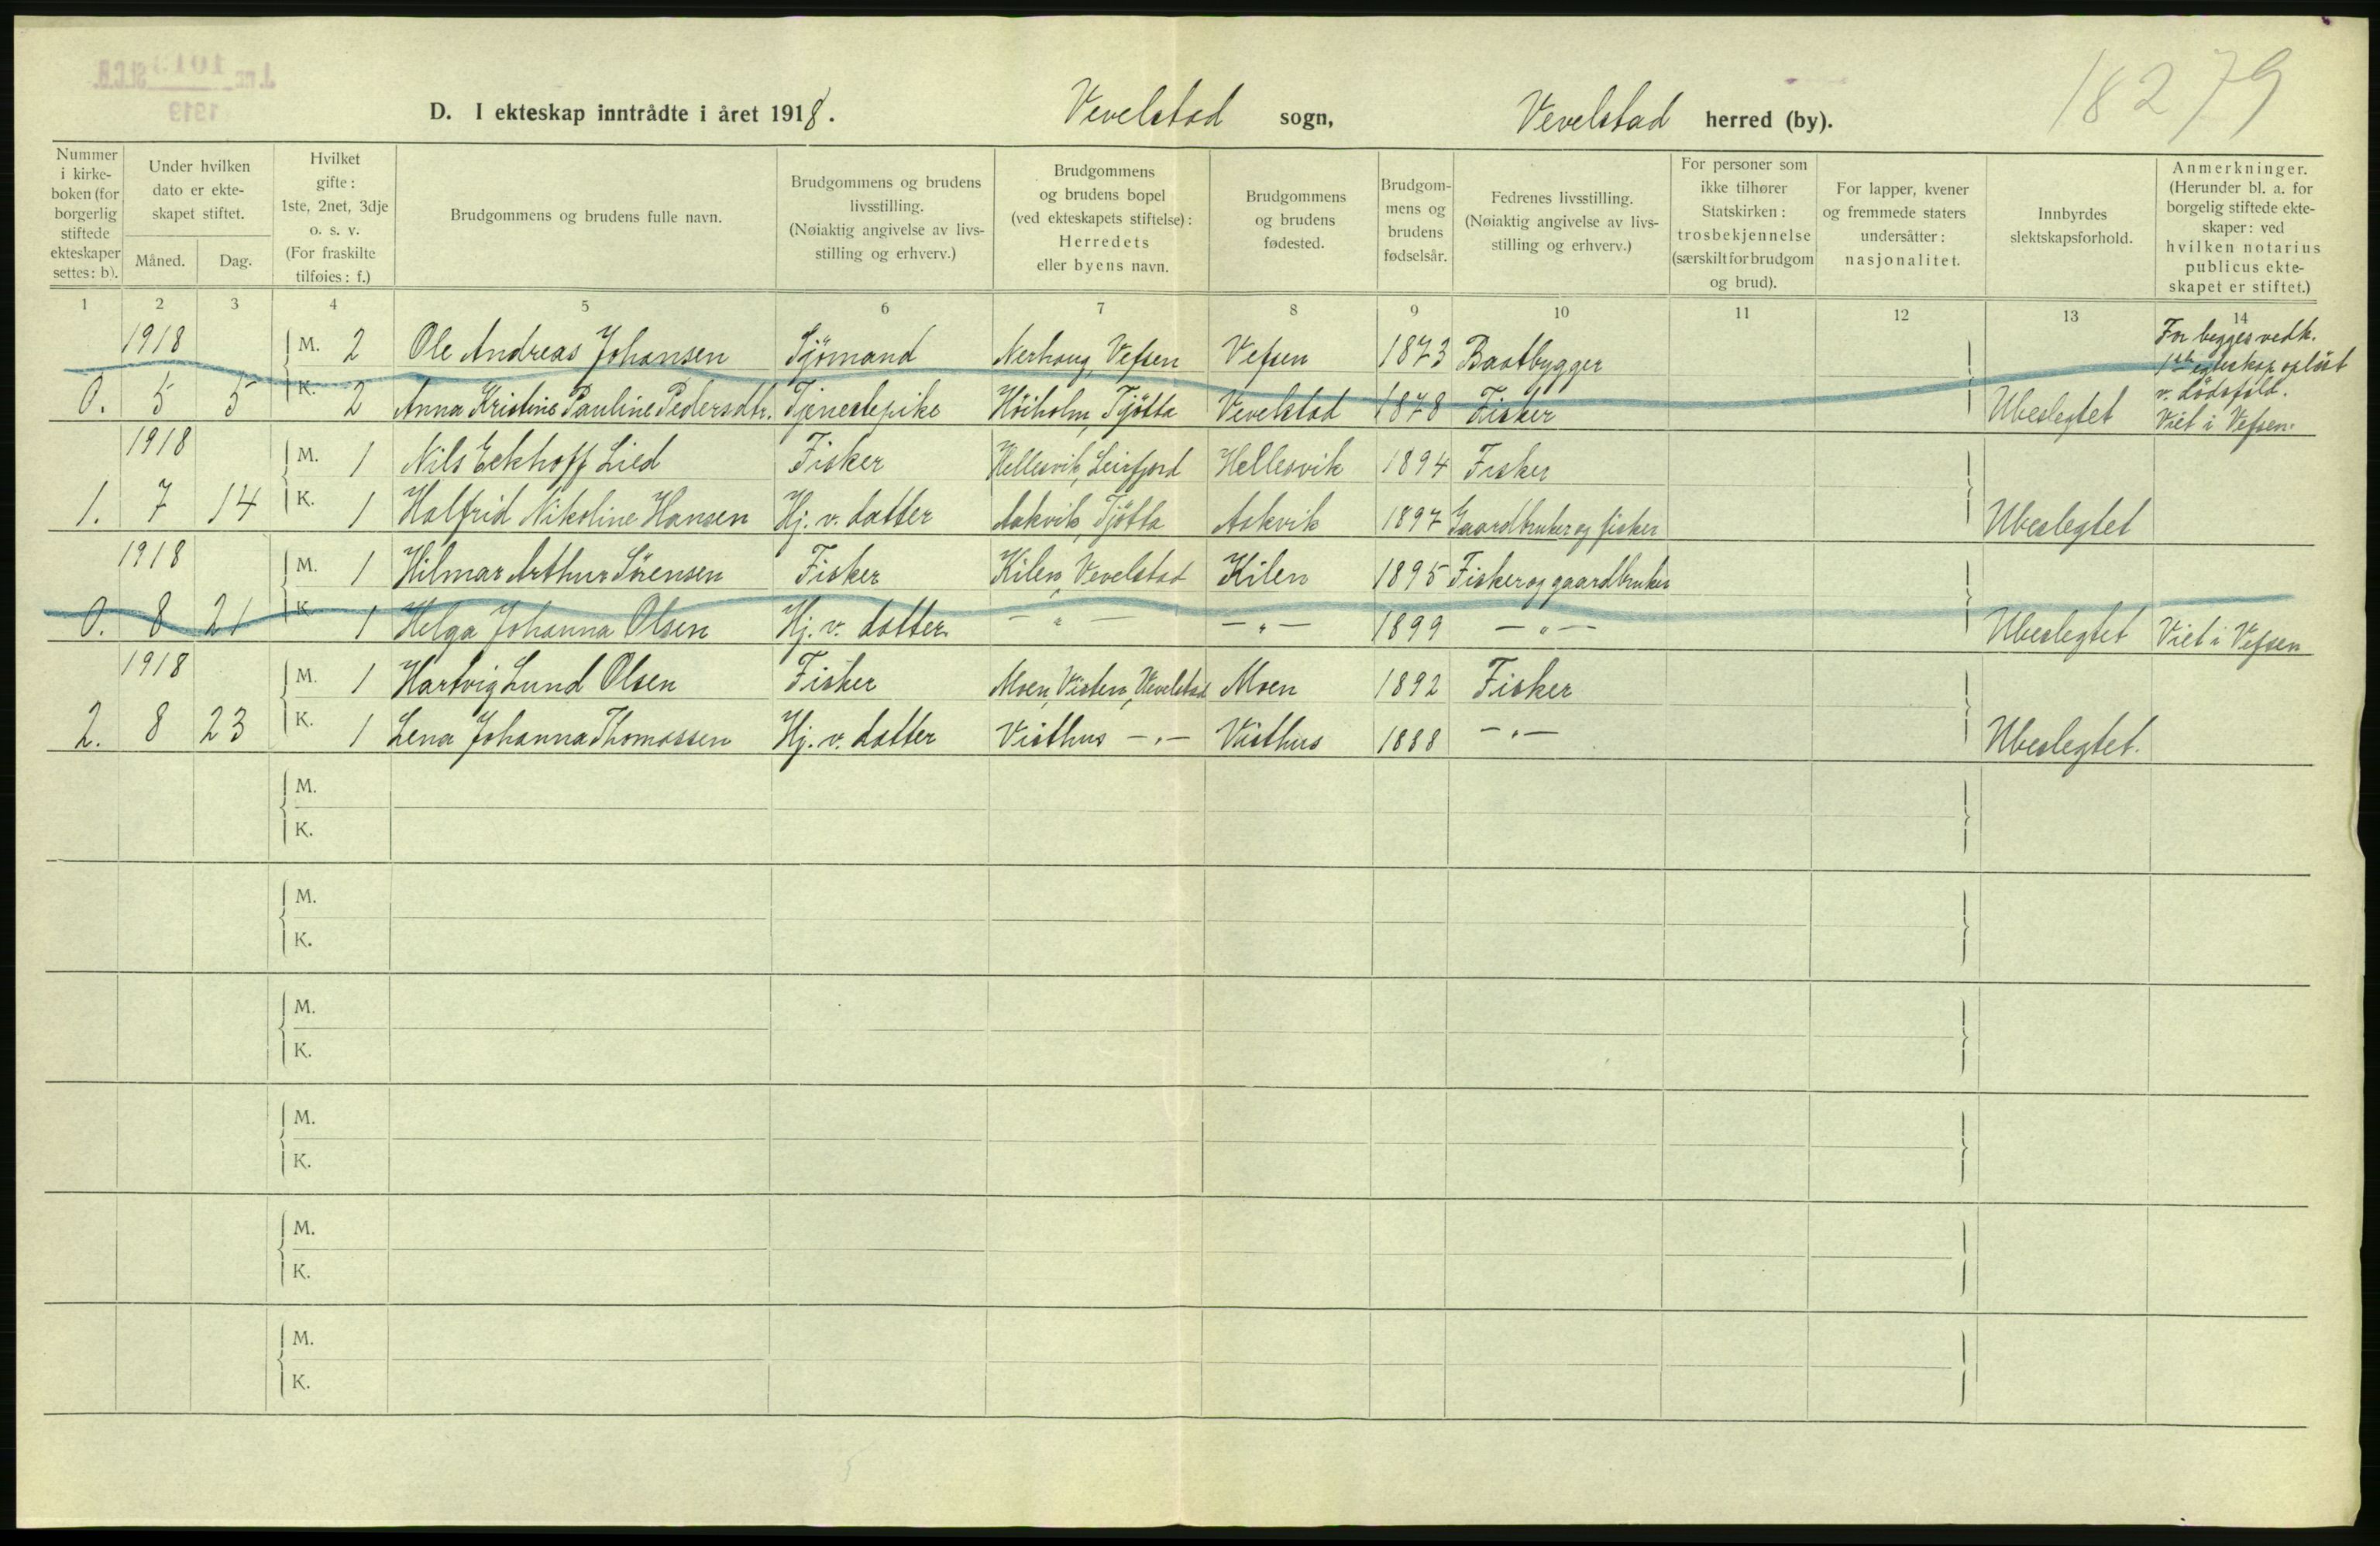 18279
D. I ekteskap inntrådte i året 1918. Vevelstad sogn, Vevelstad herred (by).
Nummer i kirke-boken (for borgerlig stiftede ekteskaper settes: b).
Under hvilken dato er ekte-skapet stiftet.
Måned. Dag.
Hvilket gifte: 1ste, 2net, 3dje o. s. v. (For fraskilte tilføies: f.)
Brudgommens og brudens fulle navn.
Brudgommens og brudens livsstilling. (Nøiaktig angivelse av livs-stilling og erhverv.)
Brudgommens og brudens bopel (ved ekteskapets stiftelse): Herredets eller byens navn.
Brudgommens og brudens fødested.
Brudgom-mens og brudens fødselsår.
Fedrenes livsstilling. (Nøiaktig angivelse av livs-stilling og erhverv.)
For personer som ikke tilhører Statskirken: trosbekjennelse (særskilt for brudgom og brud).
For lapper, kvener og fremmede staters undersåtter: nasjonalitet.
Innbyrdes slektskapsforhold.
Anmerkninger. (Herunder bl. a. for borgelig stiftede ekte-skaper: ved hvilken notarius publicus ekte-skapet er stiftet.)
1 2 3 4 5 6 7 8 9 10 11 12 13 14
1918 M. 2 Ole Andreas Johansen Sjømand Nerhaug, Vefsen Vefsen 1873 Baatbygger For begges vedk. 1ste egteskap opløst
0. 5 5 K. 2 Anna Kristine Pauline Pedersdtr. Tjenestepike Høiholm, Tjøtta Vevelstad 1878 Fisker Ubeslegtet v. dødsfald. Viet i Vefsen.
1918 M. 1 Nils Eckhoff Lied Fisker Hellesvik, Leirfjord Hellesvik 1894 Fisker
1. 7 14 K. 1 Halfrid Nikoline Hansen Hj. v. datter Aakvik, Tjøtta Aakvik 1897 Gaardbruker og fisker Ubeslegtet
1918 M. 1 Hilmar Arthur Sørensen Fisker Kilen, Vevelstad Kilen 1895 Fisker og gaardbruker
0. 8 21 K. 1 Helga Johanna Olsen Hj. v. datter. — " — — " — 1899 — " — Ubeslegtet Viet i Vefsen
1918 M. 1 Hartvig Lund Olsen Fisker Moen, Visten, Vevelstad Moen 1892 Fisker
2. 8 23 K. 1 Lena Johanna Thomassen Hj. v. datter Visthus — " — Visthus 1888 — " — Ubeslegtet.
M.
K.
M.
K.
M.
K.
M.
K.
M.
K.
M.
K.